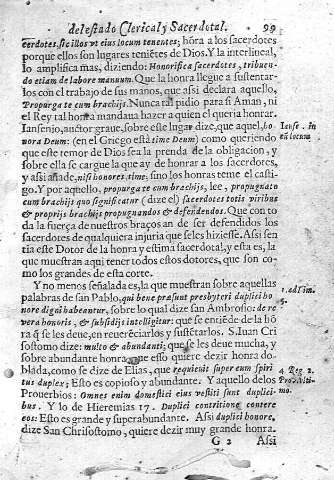 del estado Clerical y Sacerdotal. 99
cerdotes, sic illos vt eius locum tenentes; hōra a los sacerdotes
porque ellos son lugares teniētes de Dios. Y la interlineal,
lo amplifica mas, diziendo: Honorifica sacerdotes, tribuen-
do etiam de labore manuum. Que la honra llegue a sustentar-
los con el trabajo de sus manos, que assi declara aquello,
Propurga te cum brachijs. Nunca tal pidio para si Aman, ni
el Rey tal honra mandaua hazer a quien el queria honrar.
Iansenio, auctor graue, sobre este lugar dize, que aquel, ho-
nora Deum: (en el Griego està time Deum) como queriendo
que este temor de Dios sea la prenda de la obligacion, y
sobre ella se cargue la que ay de honrar a los sacerdotes,
y assi añade, nisi honores time, sino los honras teme el casti-
go. Y por aquello, propurga te cum brachijs, lee, propugnato
cum brachijs quo significatur (dize el) sacerdotes totis viribus
& proprijs brachijs propugnandos & defendendos. Que con to
da la fuerça de nuestros braços an de ser defendidos los
sacerdotes de qualquiera injuria que seles hiziesse. Assi sen
ria este Dotor de la honra y estima sacerdotal, y esta es, la
que muestran aqui tener todos estos dotores, que son co-
mo los grandes de esta corte.
Y no menos señalada es, la que muestran sobre aquellas
palabras de san Pablo, qui bene præsunt presbyteri duplici ho-
nore digni habeantur, sobre lo qual dize san Ambrosio: de re
vera honoris, & subsidijs intelligitur: que se entiēde de la hō
ra q̃ se les deue, en reuerēciarlos y sustētarlos. S. Iuan Cri
sostomo dize: multo & abundanti; que se les deue mucha, y
sobre abundante honra, que esso quiere dezir honra do-
blada, como se dize de Elias, que requieuit super eum spiri
tus duplex; Esto es copioso y abundante. Y aquello delos
Prouerbios: Omnes enim domestici eius vestiti sunt duplici-
bus. Y lo de Hieremias 17. Duplici contritione contere
eos: Esto es grande y superabundante. Assi duplici honore,
dize San Chrisostomo, quiere dezir muy grande honra.
G 2 Assi
Ianse. in
eū locum
5.
4. Reg. 2.
mo.